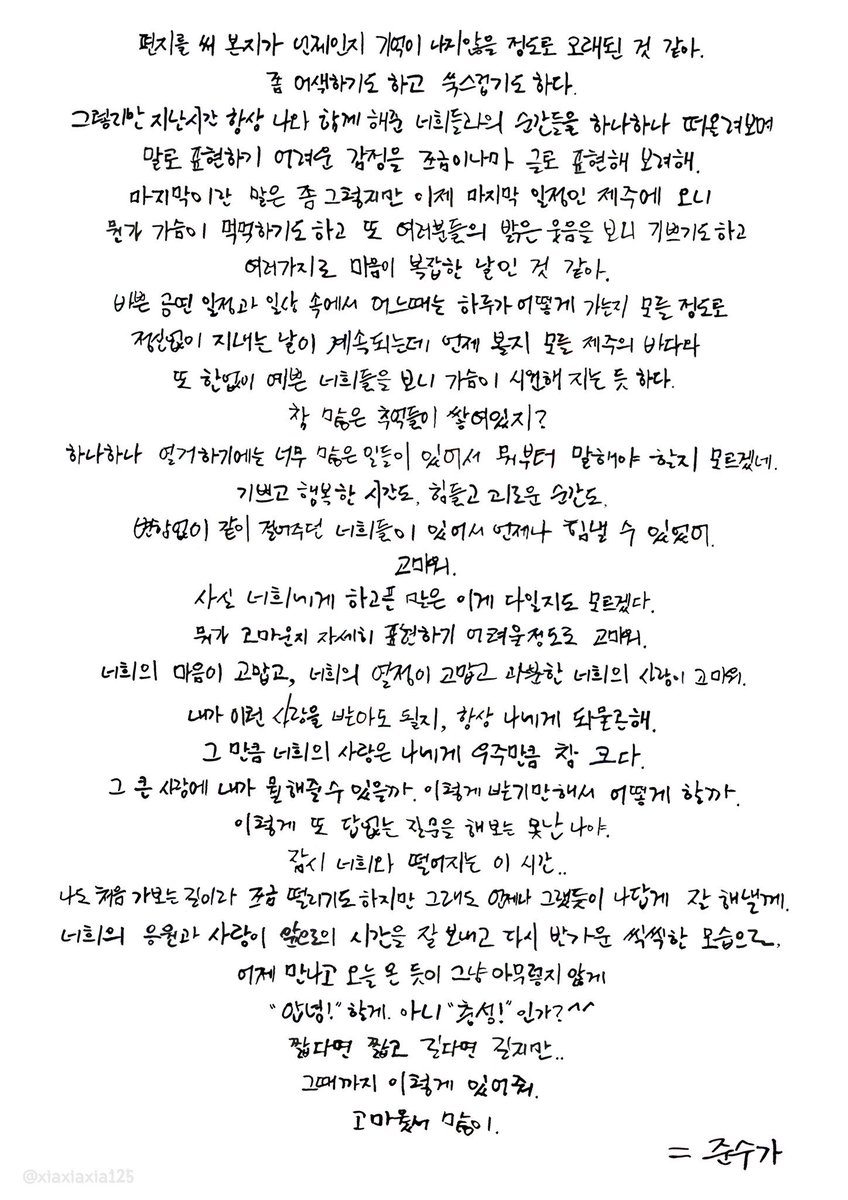 편지를 써 본지가 언제인지 기억이 나지않을 정도로 오래된 것 같아.
좀 어색하기도 하고 쑥스럽기도 하다.
그렇지만 지난시간 항상 나와 함께 해준 너희들과의 순간들을 하나하나 떠올려보며
말로 표현하기 어려운 감정을 조금이나마 글로 표현해 보려해.
마지막이란 말은 좀 그렇지만 이제 마지막 일정인 제주에 오니
뭔가 가슴이 먹먹하기도 하고 또 여러분들의 밝은 웃음을 보니 기쁘기도하고
여러가지로 마음이 복잡한 날인 것 같아.
바쁜 공연 일정과 일상 속에서 어느때는 하루가 어떻게 가는지 모를 정도로
정신없이 지내는 날이 계속되는데 언제 볼지 모를 제주의 바다와
또 한없이 예쁜 너희들을 보니 가슴이 시원해 지는 듯 하다.
참 많은 추억들이 쌓여있지?
하나하나 열거하기에는 너무 많은 일들이 있어서 뭐부터 말해야 할지 모르겠네.
기쁘고 행복한 시간도, 힘들고 괴로운 순간도,
변함없이 같이 걸어주던 너희들이 있어서 언제나 힘낼 수 있었어.
고마워.
사실 너희에게 하고픈 말은 이게 다일지도 모르겠다.
뭐가 고마운지 자세히 표현하기 어려울정도로 고마워.
너희의 마음이 고맙고, 너희의 열정이 고맙고 과분한 너희의 사랑이 고마워.
내가 이런 사랑을 받아도 될지, 항상 나에게 되물곤해.
그 만큼 너희의 사랑은 나에게 우주만큼 참 크다.
그 큰 사랑에 내가 뭘 해줄 수 있을까. 이렇게 받기만해서 어떻게 할까.
이렇게 또 답없는 질문을 해보는 못난 나야.
잠시 너희와 떨어지는 이 시간..
나도 처음 가보는 길이라 조금 떨리기도하지만 그래도 언제나 그랬듯이 나답게 잘 해낼께.
너희의 응원과 사랑이 앞으로의 시간을 잘 보내고 다시 반가운 씩씩한 모습으로,
어제 만나고 오늘 온 듯이 그냥 아무렇지 않게
"안녕!" 할게. 아니 "충성!" 인가?^^
짧다면 짧고 길다면 길지만..
그때까지 이렇게 있어줘.
고마웠어 많이.
= 준수가
@xiaxiaxia125